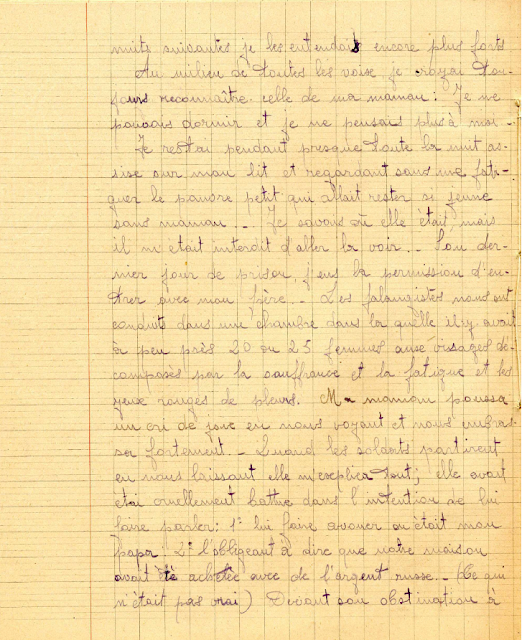 nuits suivantes je les entendais encore plus forts
Au milieu de toutes les voix je croyai tou-
jours reconnaître celle de ma maman: Je ne
pouvais dormir et je ne pensais plus à moi.-
Je restai pendant presque toute la nuit as-
sise sur mon lit et regardant sans me fati-
guer le pauvre petit qui allait rester si jeune
sans maman.- Je savais où elle était, mais
il m'était interdit d'aller la voir.- Son der-
nier jour de prison j'eus la permission d'en-
trer avec mon frère.- Les falangistes nous ont
conduits dans une chambre dans la quelle il y avait
à peu près 20 ou 25 femmes aux visages dé-
composés par la souffrance et la fatigue et les
yeux rouges de pleurs. Ma maman poussa
un cri de joie en nous voyant et nous embras-
sa fortement.- Quand les soldats partirent
en nous laissant elle m'explica tout; elle avait
été cruellement battue dans l'intention de lui
faire parler: 1º lui faire avouer ou était mon
papa 2º l'obligeant à dire que notre maison
avait été achetée avec de l'argent russe.- (Ce qui
n'était pas vrai) Devant son obstination à